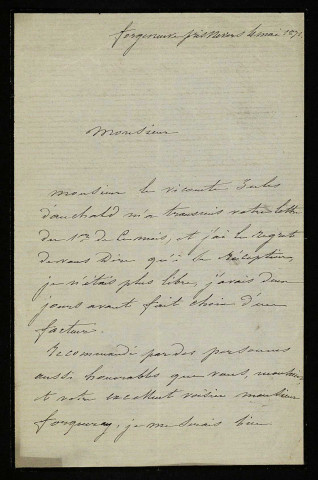 près Nevers 4 mai 1871.
Monsieur
Monsieur le vicomte Jules
m'a transmis votre lettre
du 1er de ce mois, et j'ai le regret
de vous dire qu'à sa réception
je n'étais plus libre, j'avais deux
jours avant fait choix d'un
facteur.
Recommandé par des personnes
aussi honorables que vous, monsieur
et votre excellent voisin monsieur
je me serais bien